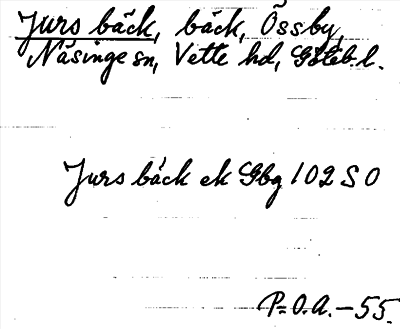 Jurs bäck, bäck, Össby,
Näsinge sn, Vette hd, Göteb l.
Jurs bäck ek Gbg 102 S O
P=O.A.-55.